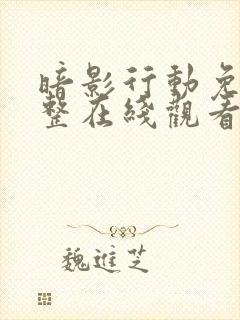 暗影行動免
整在綫觀看
魏進芝